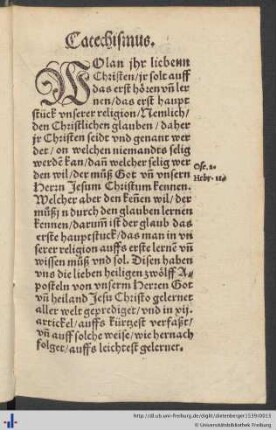 Catechismus.
WOlan jhr liebenn
Christen/jr solt auff
das erst hören vñ ler
nen/das erst haupt
stück vnserer religion/Nemlich/
den Christlichen glauben/daher
jr Christen seidt vnd genant wer
det/on welchen niemandts selig
werdē kan/dañ welcher selig wer
den wil/der můß Got vñ vnsern
Herrn Jesum Christum kennen.
Ose. 2.
Hebr. 11.
Welcher aber den keñen wil/der
můßjn durch den glauben lernen
kennen/darum̃ ist der glaub das
erste hauptstuck/das man in vn
serer religion auffs erste lernē vñ
wissen můß vnd sol. Disen haben
vns die lieben heiligen zwölff A-
posteln von vnserm Herren Got
vñ heiland Jesu Christo gelernet
aller welt geprediget/vnd in xij.
artickel/auffs kürzest verfaßt/
vñ auff solche weise/wie hernach
folget/auffs leichtest gelernet.
http://dl.ub.uni-freiburg.de/diglit/dietenberger1539/0013
© Universitätsbibliothek Freiburg